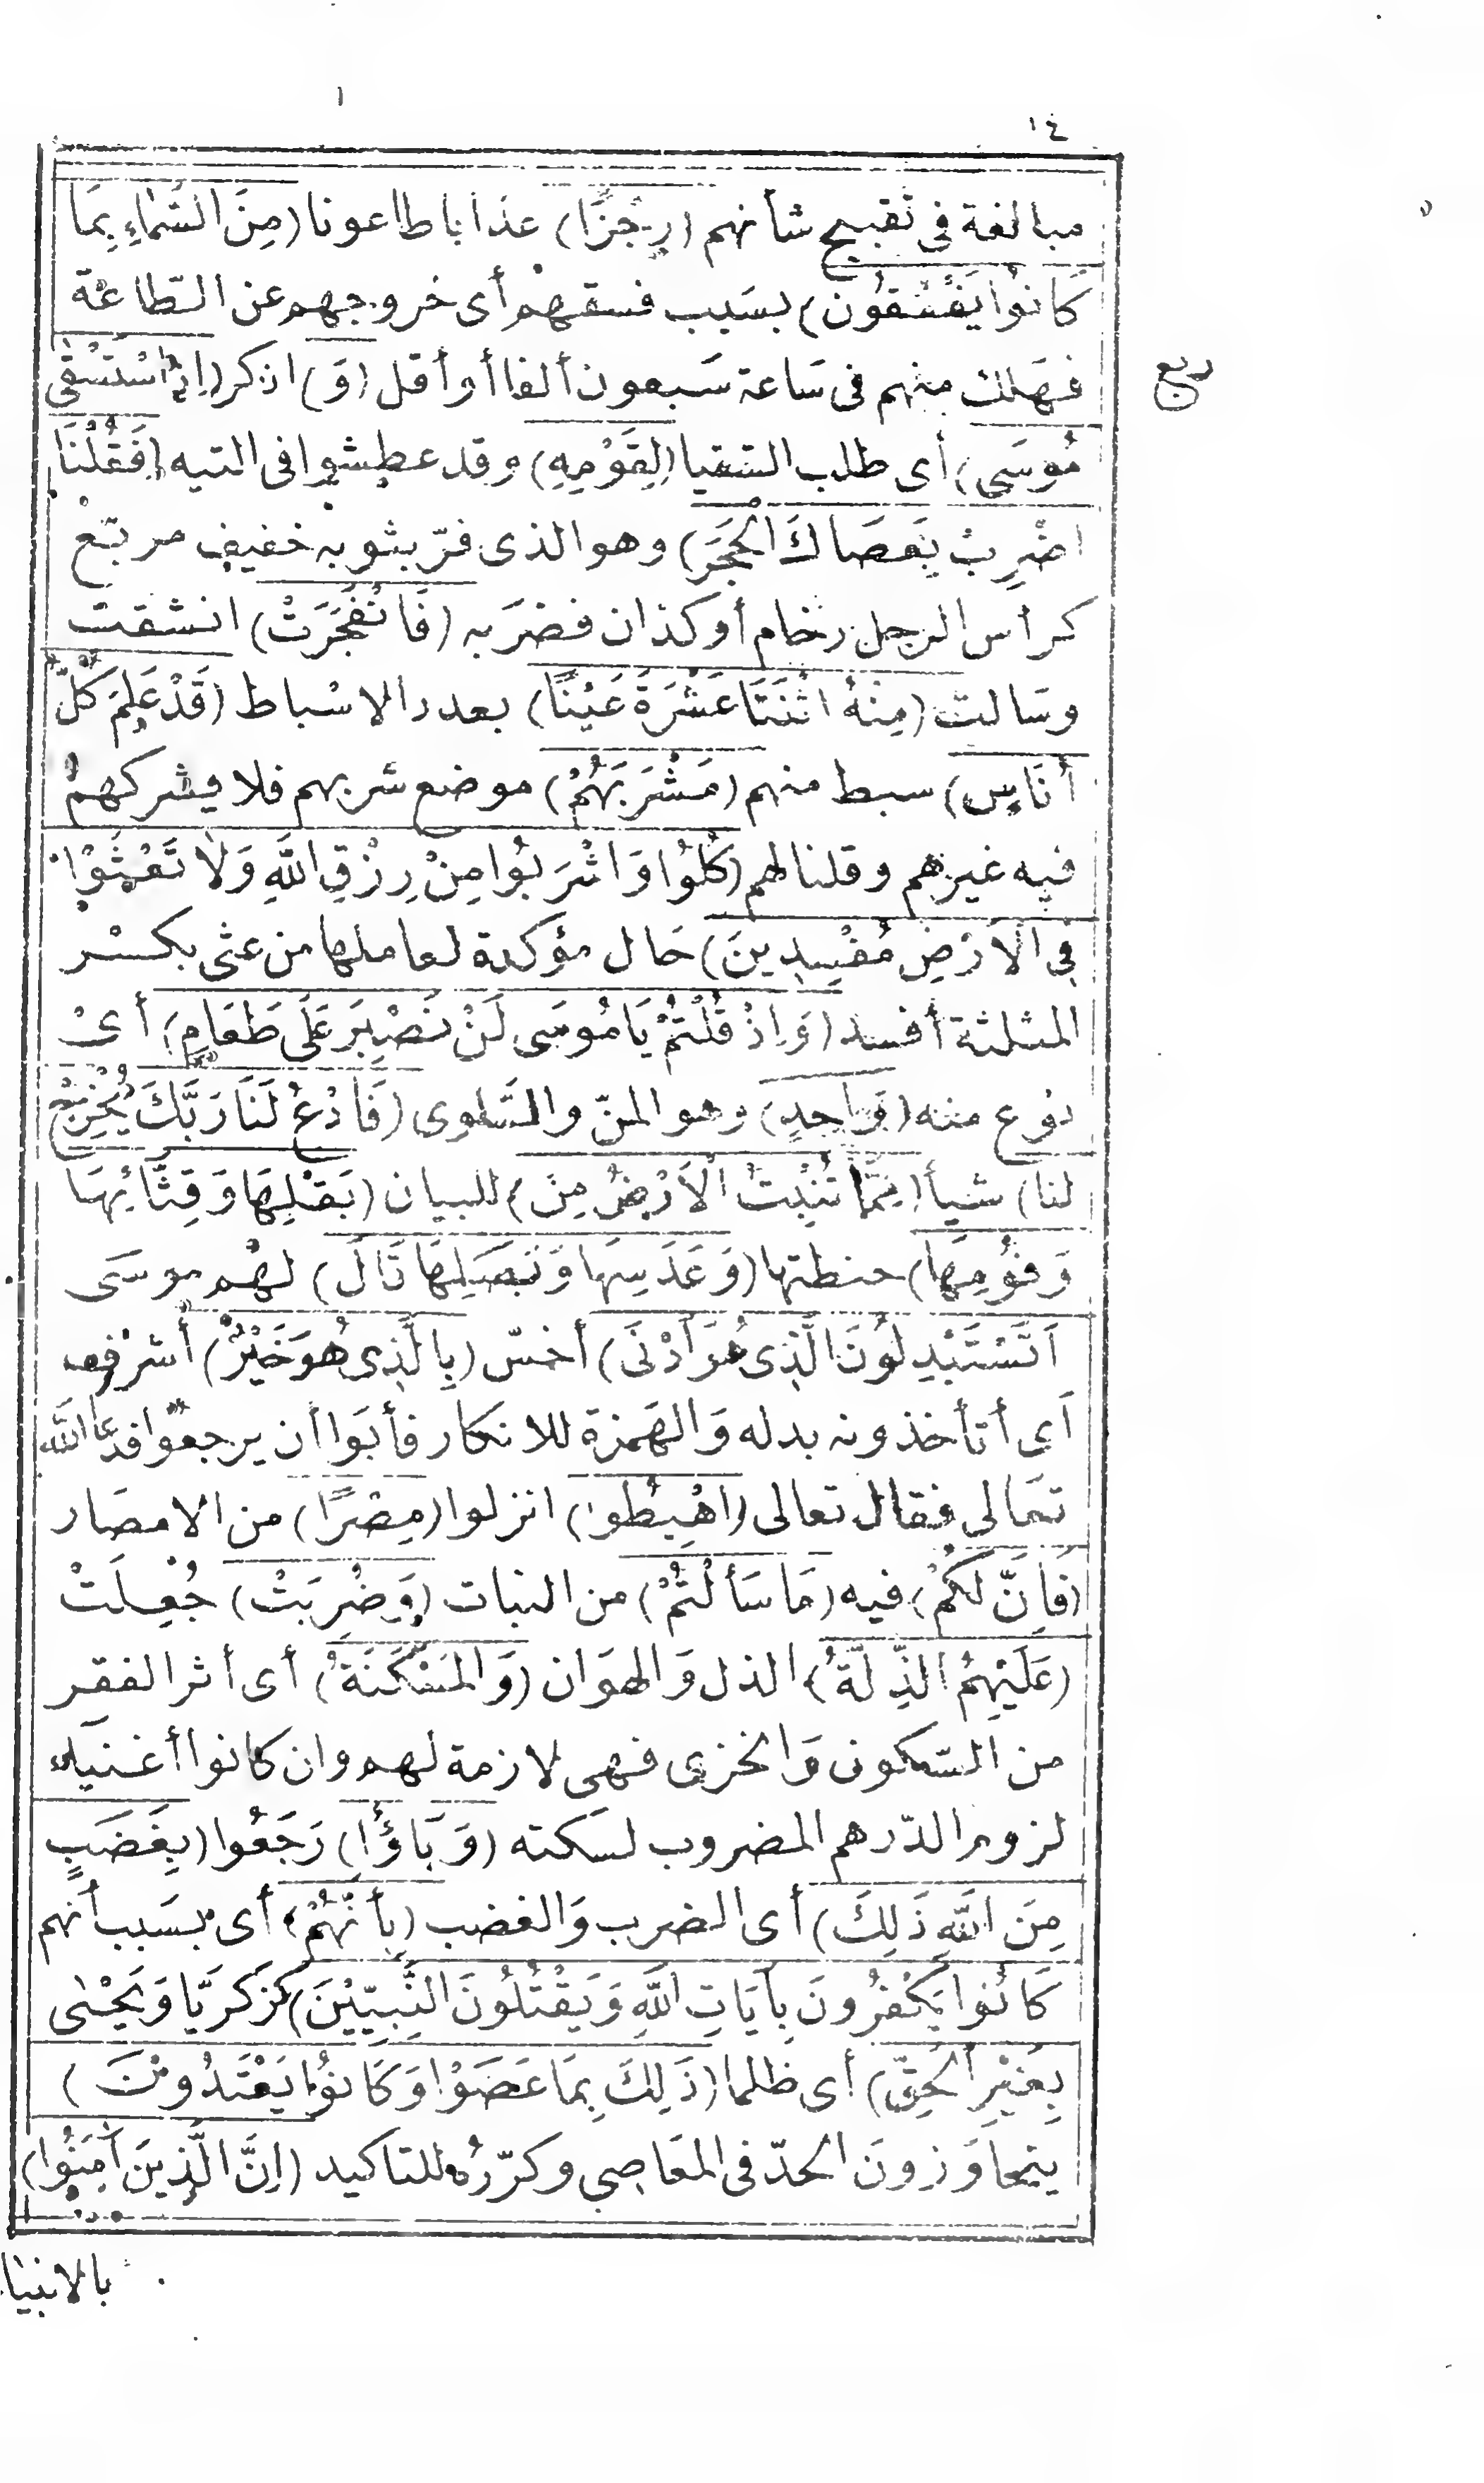 ١٤
مبالغة فى تقبيح شأنهم (رِجْزًا) عذابا طاعونا (مِنَ السَّمَاءِ بِمَا
كَانُوا يَفْسُقُونَ) بسَبب فسقهم أى خروجهم عن الطّاعَة
فهَلك منهم فى سَاعة سَبعون ألفا أو أقل (وَ) اذكر (اِذِ اسْتَسْقَى
مُوسَى) أى طلب السّقيا (لِقَوْمِهِ) وقد عطشوا فى التيه (فَقُلْنَا
اضْرِبْ بِعَصَاكَ الْحَجَرَ) وهو الذى فرّ بثوبه خفيف مربّع
كرأس الرجل رخام أو كذان فضرَبه (فَانْفَجَرَتْ) انشقت
وسَالت (مِنْهُ اثْنَتَا عَشْرَةَ عَيْنًا) بعدد الاسْباط (قَدْ عَلِمَ كُلُّ
أُنَاسٍ) سبط منهم (مَشْرَبَهُمْ) موضع شربهم فلا يشركهمْ
فيه غيرهم وقلنا لهم (كُلُوا وَاشْرَبُوا مِنْ رِزْقِ اللَّهِ وَلَا تَعْثَوْا
فِى الْأَرْضِ مُفْسِدِينَ) حَال مؤكدة لعاملها من عثى بكسْر
المثلثة أفسد (وَاِذْ قُلْتُمْ يَا مُوسَى لَنْ نَصْبِرَ عَلَى طَعَامٍ) أىْ
نوع منه (وَاحِدٍ) وهو المنّ والسَّلوى (فَادْعُ لَنَا رَبَّكَ يُخْرِجْ
لنا) شيأ (مِمَّا تُنْبِتُ الْأَرْضُ مِنْ) للبيان (بَقْلِهَا وَقِثَّائِهَا
وَفُومِهَا) حنطتها (وَعَدَسِهَا وَبَصَلِهَا قَالَ) لهُم موسَى
اَتَسْتَبْدِلُونَ الَّذِى هُوَ أَدْنَى) أخسّ (بِالَّذِى هُوَ خَيْرٌ) أشرف
أى أتأخذونه بدله وَالهَمزة للانكار فأبَوا أن يرجعوا فدعَا اللَّه
تعَالى فقال تعالى (اهْبِطُوا) انزلوا (مِصْرًا) من الامصَار
(فَاِنَّ لَكُمْ) فيه (مَا سَأَلْتُمْ) من النبات (وَضُرِبَتْ) جُعِلَتْ
(عَلَيْهِمُ الذِّلَّةُ) الذل وَالهوَان (وَالْمَسْكَنَةُ) أى أثر الفقر
من السّكون وَالخزى فهى لازمة لهم وان كانوا أغنياء
لزوم الدّرهم المضروب لسَكته (وَبَاؤُا) رَجَعُوا (بِغَضَبٍ
مِنَ اللَّهِ ذَلِكَ) أى الضرب وَالغضب (بِأَنَّهُمْ) أى بسَبب أنهم
كَانُوا يَكْفُرُونَ بِآيَاتِ اللَّهِ وَيَقْتُلُونَ النَّبِيِّيْنَ) كزَكَرِيَّا وَيَحْيٰى
بِغَيْرِ الْحَقِّ) أى ظلما (ذَلِكَ بِمَا عَصَوْا وَكَانُوا يَعْتَدُونَ)
يتجاوَزونَ الحدّ فى المعَاصِى وكرّرُه للتاكيد (اِنَّ الَّذِينَ آمَنُوا)
بالانبيا
ربع